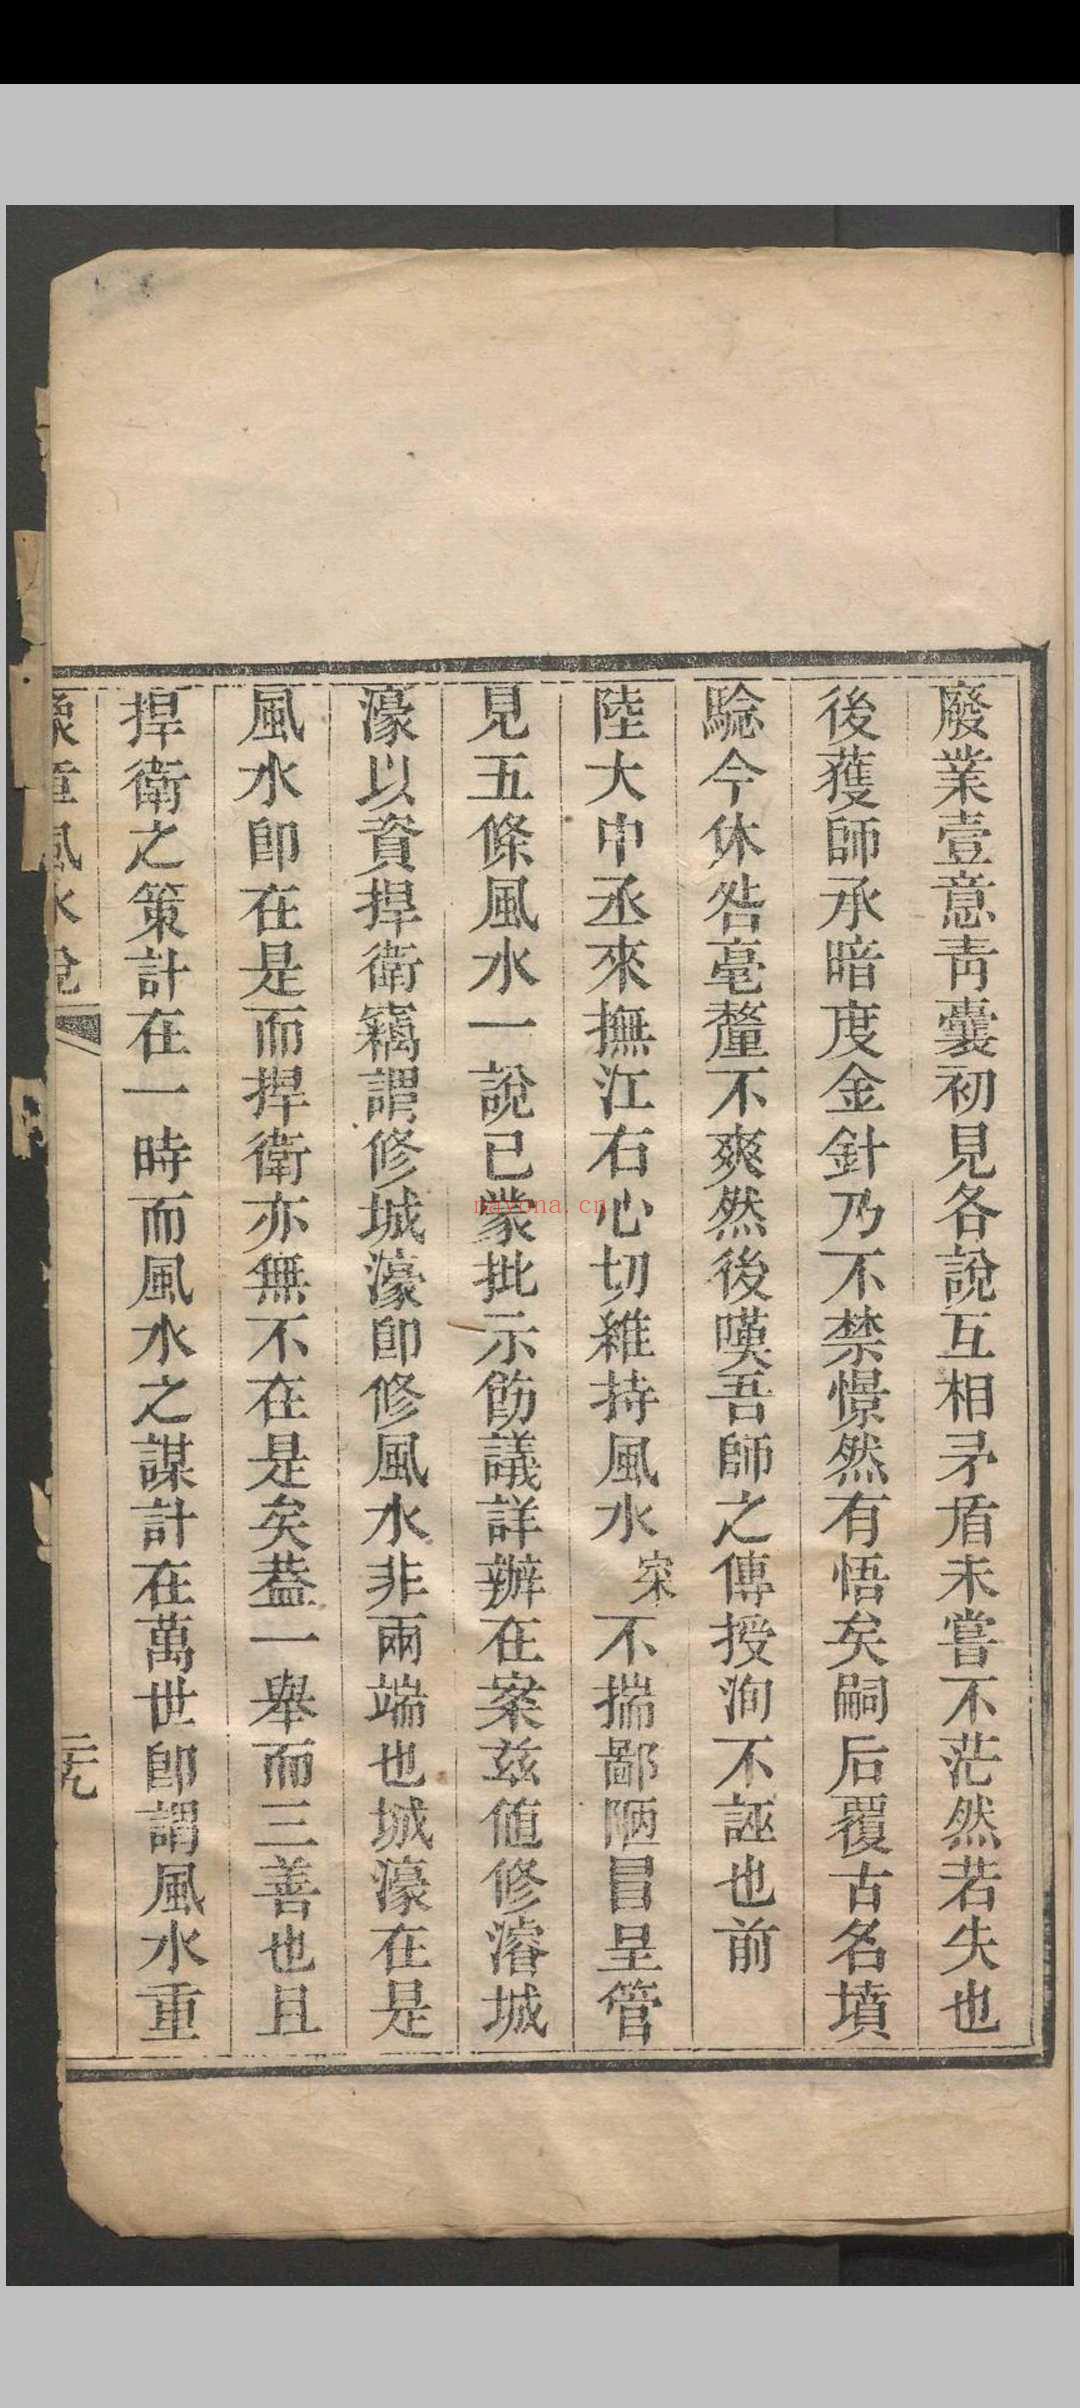 廢業壹意靑囊初見各說互相矛盾未嘗不茫然若失也
後獲師承暗度金針乃不禁憬然有悟矣嗣后覆古名墳
騐今休咎毫釐不爽然後嘆吾師之傳授洵不誣也前
陸大中丞來撫江右心切維持風水宷不揣鄙陋冒呈管
見五條風水一說已蒙批示飭議詳辦在案茲値修濬城
濠以資捍衛竊謂修城濠卽修風水非兩端也城濠在是
風水卽在是而捍衛亦無不在是矣葢一舉而三善也且
捍衛之策計在一時而風水之謀計在萬世卽謂風水重
章風水說
元
nayona.cn